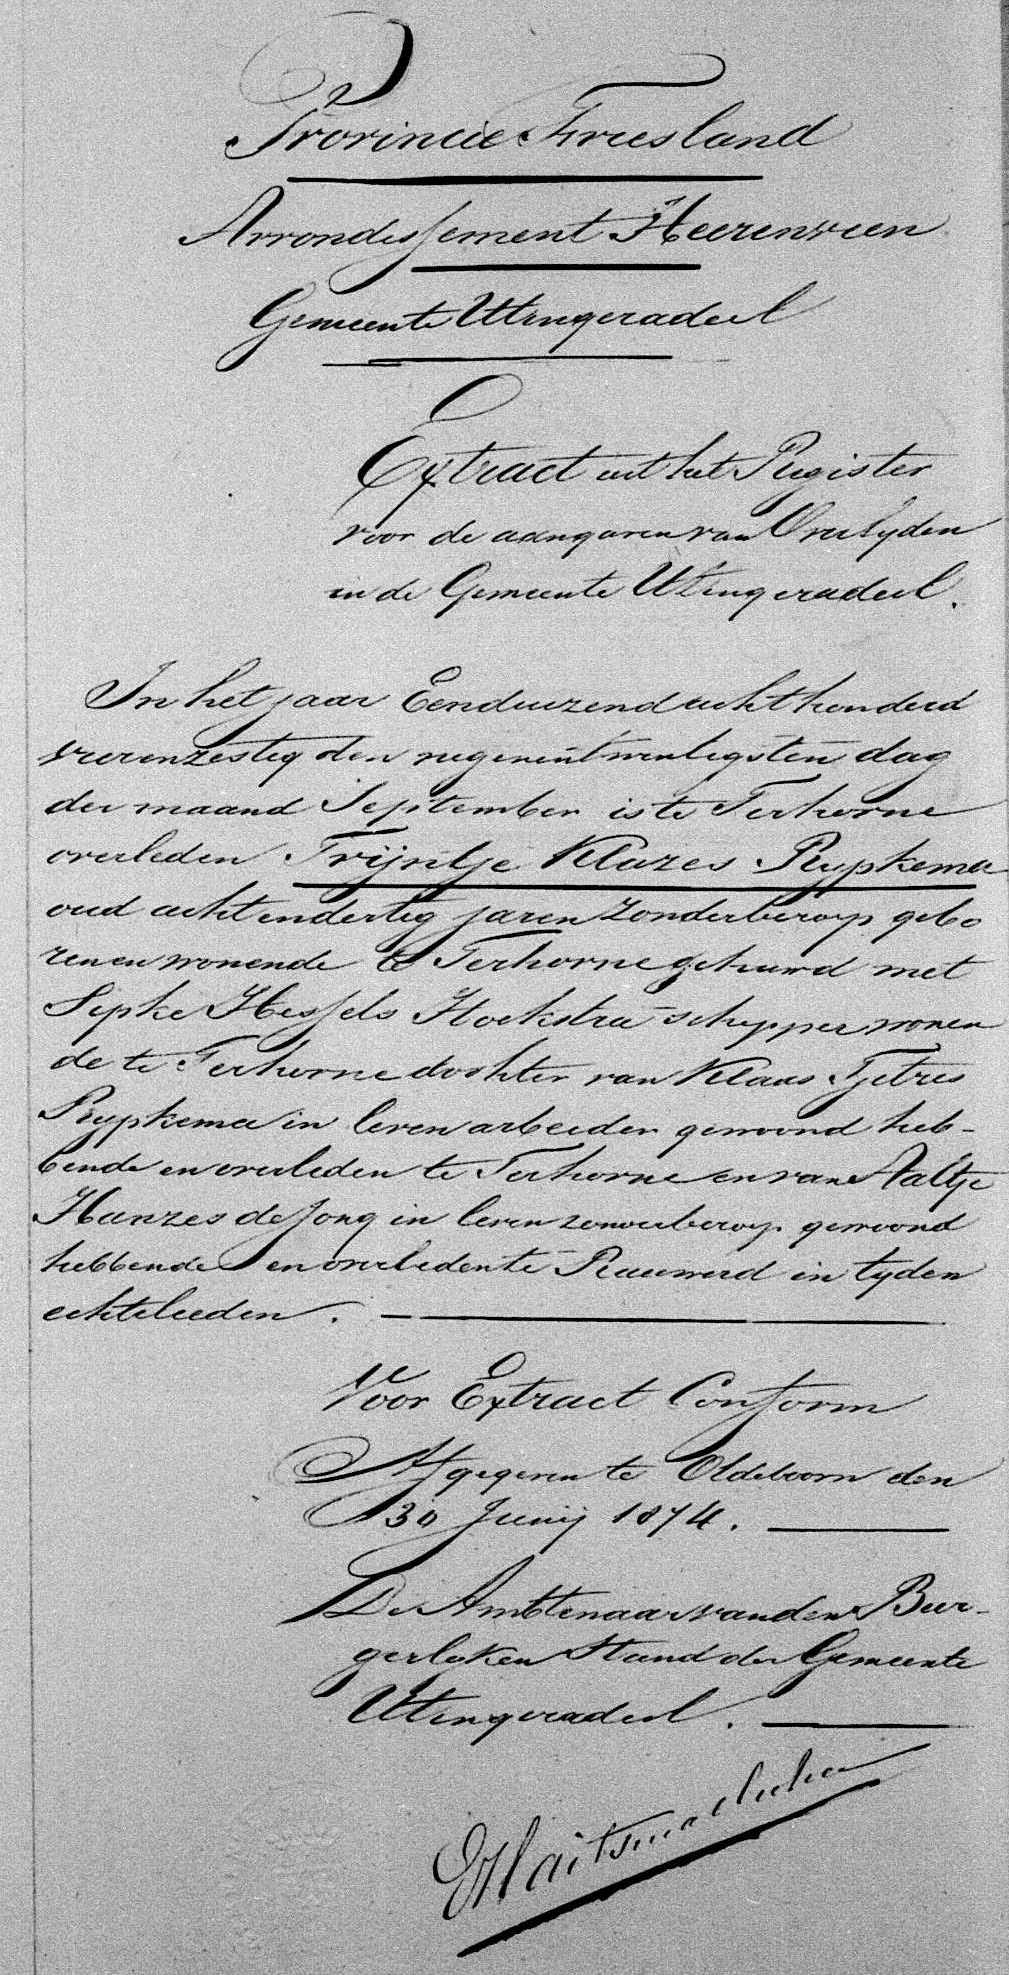 Provincie Friesland
Arrondissement Heerenveen
Gemeente Utingeradeel
Extract uit het Register
voor de aangaven van Overlyden
in de Gemeente Utingeradeel.
In het jaar Eenduizend achthonderd
vierenzestig den negenentwintigsten dag
der maand September is te Terhorne
overleden Trijntje Klazes Rypkema
oud achtendertig jaren zonder beroep gebo
ren en wonende te Terhorne gehuwd met
Sipke Hessels Hoekstra schipper wonen
de te Terhorne dochter van Klaas Tjetzes
Rypkema in leven arbeider gewoond heb-
bende en overleden te Terhorne en van Aaltje
Hanzes de Jong in leven zonder beroep gewoond
hebbende en overleden te Rauwerd in tyden
echtelieden.
Voor Extract Conform
Afgegeven te Oldeboorn den
30 Junij 1874.
De Ambtenaar van den Bur-
gerlyken Stand der Gemeente
Utingeradeel.
Haitsma